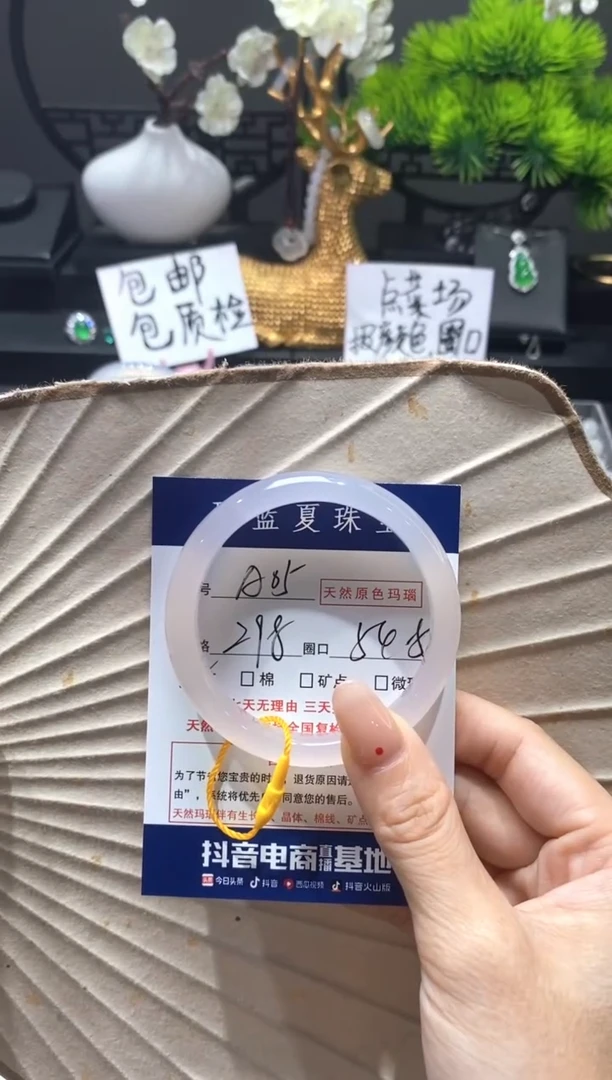 包邮
包质检
点菜场
按颜色.圈口
蓝夏珠
号 A05 天然原色玛瑙
格 298 圈口 54.8
棉 矿点 微
七天无理由 三天
天然 全国复检
为了节省您宝贵的时 ，退货原因请
由”，系统将优先 同意您的售后。
天然玛瑙伴有生长 、晶体、棉线、矿点
抖音电商直播基地
今日头条 抖音 西瓜视频 抖音火山版